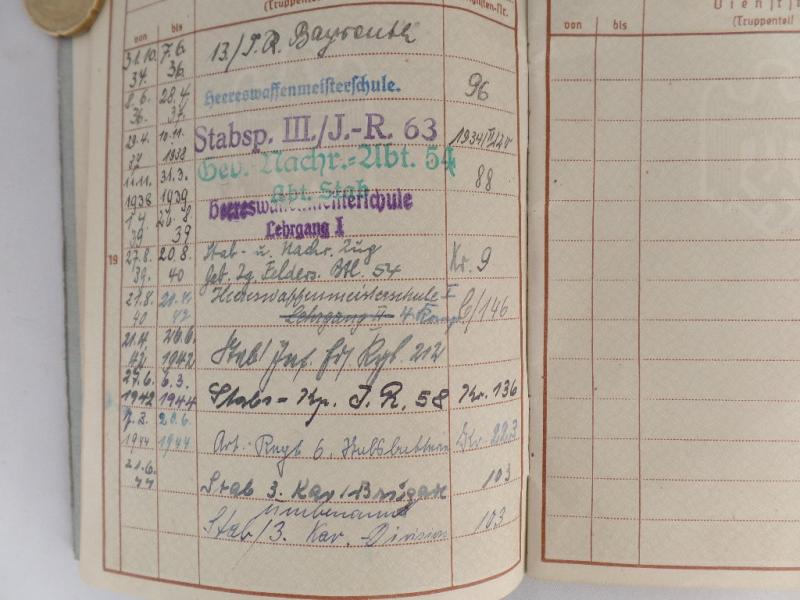 von bis
(Truppenteil
31.10. 7.6. 13./J.R. Bayreuth
34. 36.
8.6. 28.4. Heereswaffenmeisterschule. 96
36. 37.
29.4. 10.11. Stabsp. III./J.-R. 63
37 1938
11.11. 31.3. Geb.-Nachr.-Abt. 54 88
1938 1939 Abt. Stab
1.4. 26.8 Heereswaffenmeisterschule
39 39 Lehrgang I
19 27.8 20.8. Stab- u. Nachr. Zug Nr. 9
39. 40 Geb. Jg. Felders. Btl. 54
21.8. Heereswaffenmeisterschule I
40 42 Lehrgang II 4. Komp. E/146
21.4. 26.6. Stab/Inf. Rgt. 212
42 1942
27.6. 6.3. Stabs-Kp. J.R. 58 Nr. 136
1942 1944
7.3. 20.6. Art. Regt 6.
1944 1944
21.6. Stab 3. Kav. Brigade 103
44
umbenannt
Stab/3. Kav. Division 103
von bis
Dienstst
(Truppenteil